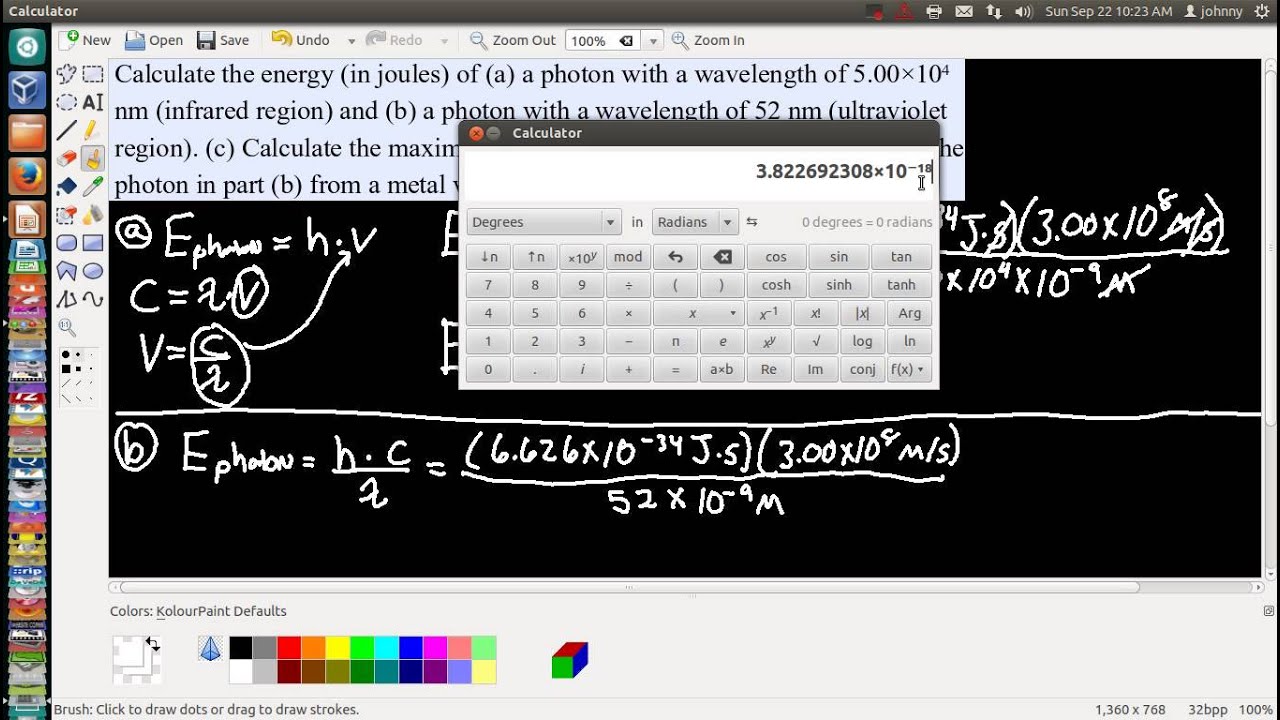 Calculator
Sun Sep 22 10:23 AM
johnny
New
Open
Save
Undo
Redo
Zoom Out
100%
Zoom In
Calculate the energy (in joules) of (a) a photon with a wavelength of 5.00×10⁴
nm (infrared region) and (b) a photon with a wavelength of 52 nm (ultraviolet
region). (c) Calculate the maxim
he
photon in part (b) from a metal
Calculator
3.822692308×10⁻¹⁸
Degrees
in
Radians
0 degrees = 0 radians
↓n ↑n ×10ʸ mod cos sin tan
7 8 9 ÷ ( ) cosh sinh tanh
4 5 6 × x x⁻¹ x! |x| Arg
1 2 3 − π e xʸ √ log ln
0 . i + = a×b Re Im conj f(x)
a E photon = h·ν
C = λ ν
ν = C/λ
E
34 J·s)(3.00×10⁸ M/s)
×10⁴×10⁻⁹ M
E
b E photon = h·C/λ = (6.626×10⁻³⁴ J·s)(3.00×10⁸ M/s)
52×10⁻⁹ M
Colors: KolourPaint Defaults
Brush: Click to draw dots or drag to draw strokes.
1,360 x 768
32bpp
100%